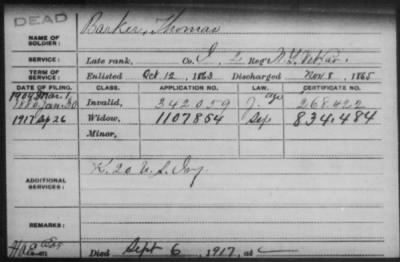 DEAD
NAME OF SOLDIER: Barker, Thomas
SERVICE: Late rank, Co. I, 2 Reg't N.Y. Vet Cav.
TERM OF SERVICE: Enlisted Oct 12, 1863 Discharged Nov. 8, 1865
DATE OF FILING. CLASS. APPLICATION NO. LAW. CERTIFICATE NO.
1904 Mar. 1 age
1880 Jan. 30 Invalid, 342059 J. 268422
1917 Sep 26 Widow, 1107854 Sep 834484
Minor,
ADDITIONAL SERVICES: K. 20 U.S. Inf
REMARKS:
Died Sept 6, 1917, at